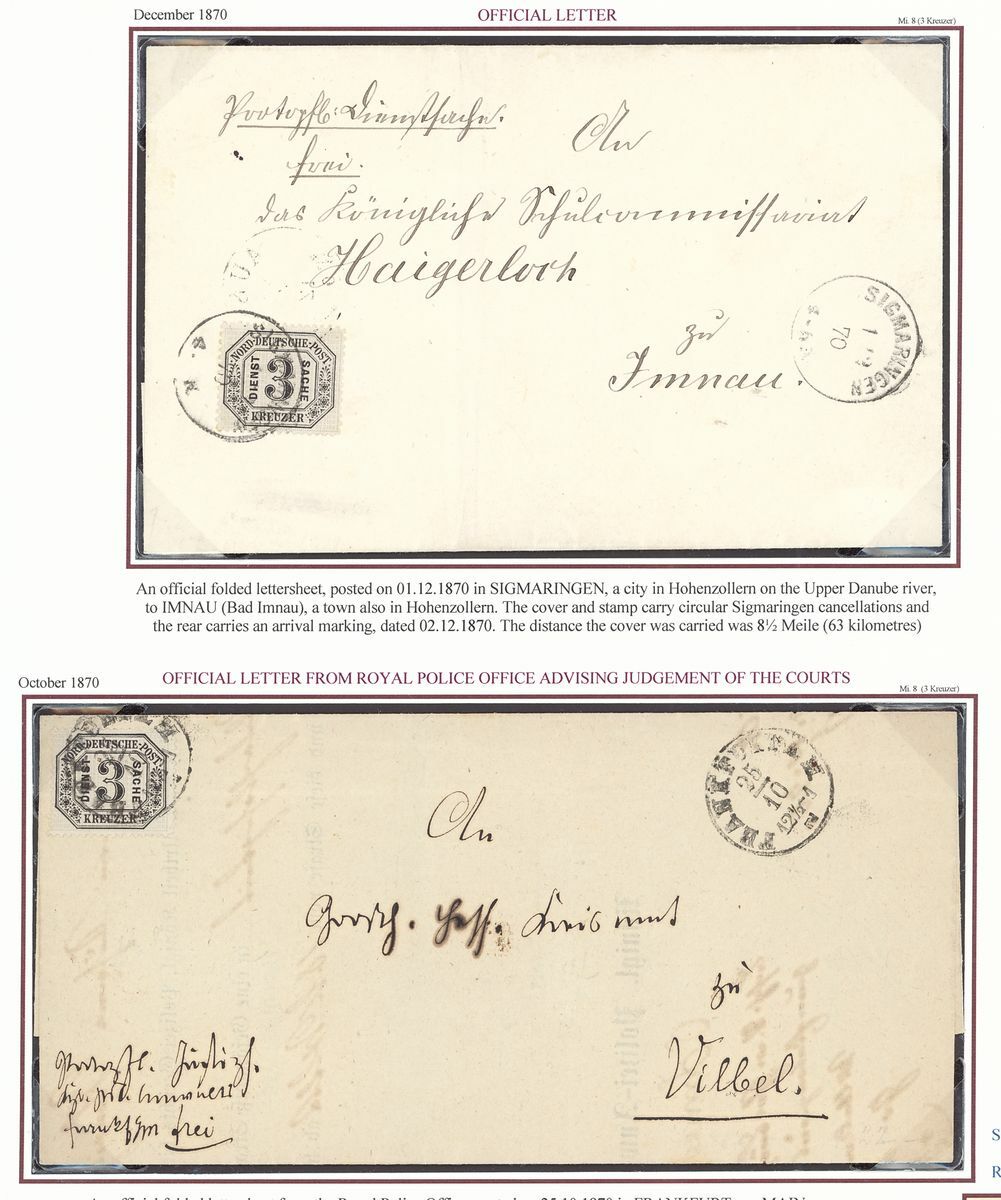 December 1870
OFFICIAL LETTER
Mi. 8 (3 Kreuzer)
Portopfl: Dienstsache.
frei.
An
das Königliche Schulcommissariat
Haigerloch
zu
Imnau.
SIGMARINGEN
70
NORD-DEUTSCHE-POST
DIENST
3
SACHE
KREUZER
An official folded lettersheet, posted on 01.12.1870 in SIGMARINGEN, a city in Hohenzollern on the Upper Danube river,
to IMNAU (Bad Imnau), a town also in Hohenzollern. The cover and stamp carry circular Sigmaringen cancellations and
the rear carries an arrival marking, dated 02.12.1870. The distance the cover was carried was 8½ Meile (63 kilometres)
October 1870
OFFICIAL LETTER FROM ROYAL POLICE OFFICE ADVISING JUDGEMENT OF THE COURTS
Mi. 8 (3 Kreuzer)
NORD-DEUTSCHE-POST
DIENST
3
SACHE
KREUZER
FRANKFURT A. M.
25
10
12½-1 N
An
Grosh. Hess. Kreisamt
zu
Vilbel.
Portopfl. Justizs.
frei
S
R